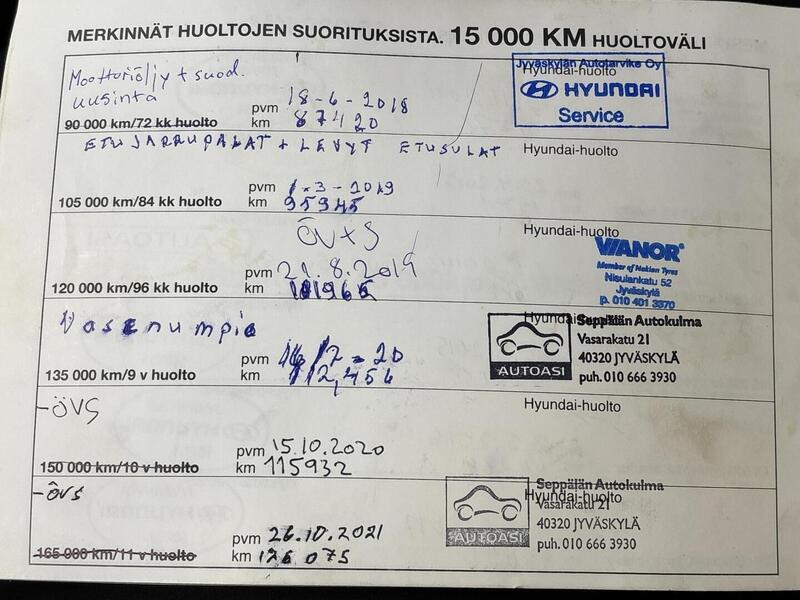 MERKINNÄT HUOLTOJEN SUORITUKSISTA. 15 000 KM HUOLTOVÄLI
Moottoriöljy + suod.
uusinta
90 000 km/72 kk huolto
pvm 18-6-2018
km 87420
Hyundai-huolto
Jyväskylän Autotarvike Oy
HYUNDAI
Service
ETUJARRUPALAT + LEVYT ETUSULAT
105 000 km/84 kk huolto
pvm 1.3-2019
km 95945
Hyundai-huolto
ÖV+S
120 000 km/96 kk huolto
pvm 21.8.2019
km 101965
Hyundai-huolto
VIANOR
Member of Nokian Tyres
Nisulankatu 52
Jyväskylä
p. 010 401 3370
135 000 km/9 v huolto
pvm 16/7-20
km 112,456
Hyundai-huolto
AUTOASI
Seppälän Autokulma
Vasarakatu 21
40320 JYVÄSKYLÄ
puh. 010 666 3930
-ÖVS
150 000 km/10 v huolto
pvm 15.10.2020
km 115932
Hyundai-huolto
-ÖVS
165 000 km/11 v huolto
pvm 26.10.2021
km 126075
Hyundai-huolto
AUTOASI
Seppälän Autokulma
Vasarakatu 21
40320 JYVÄSKYLÄ
puh. 010 666 3930